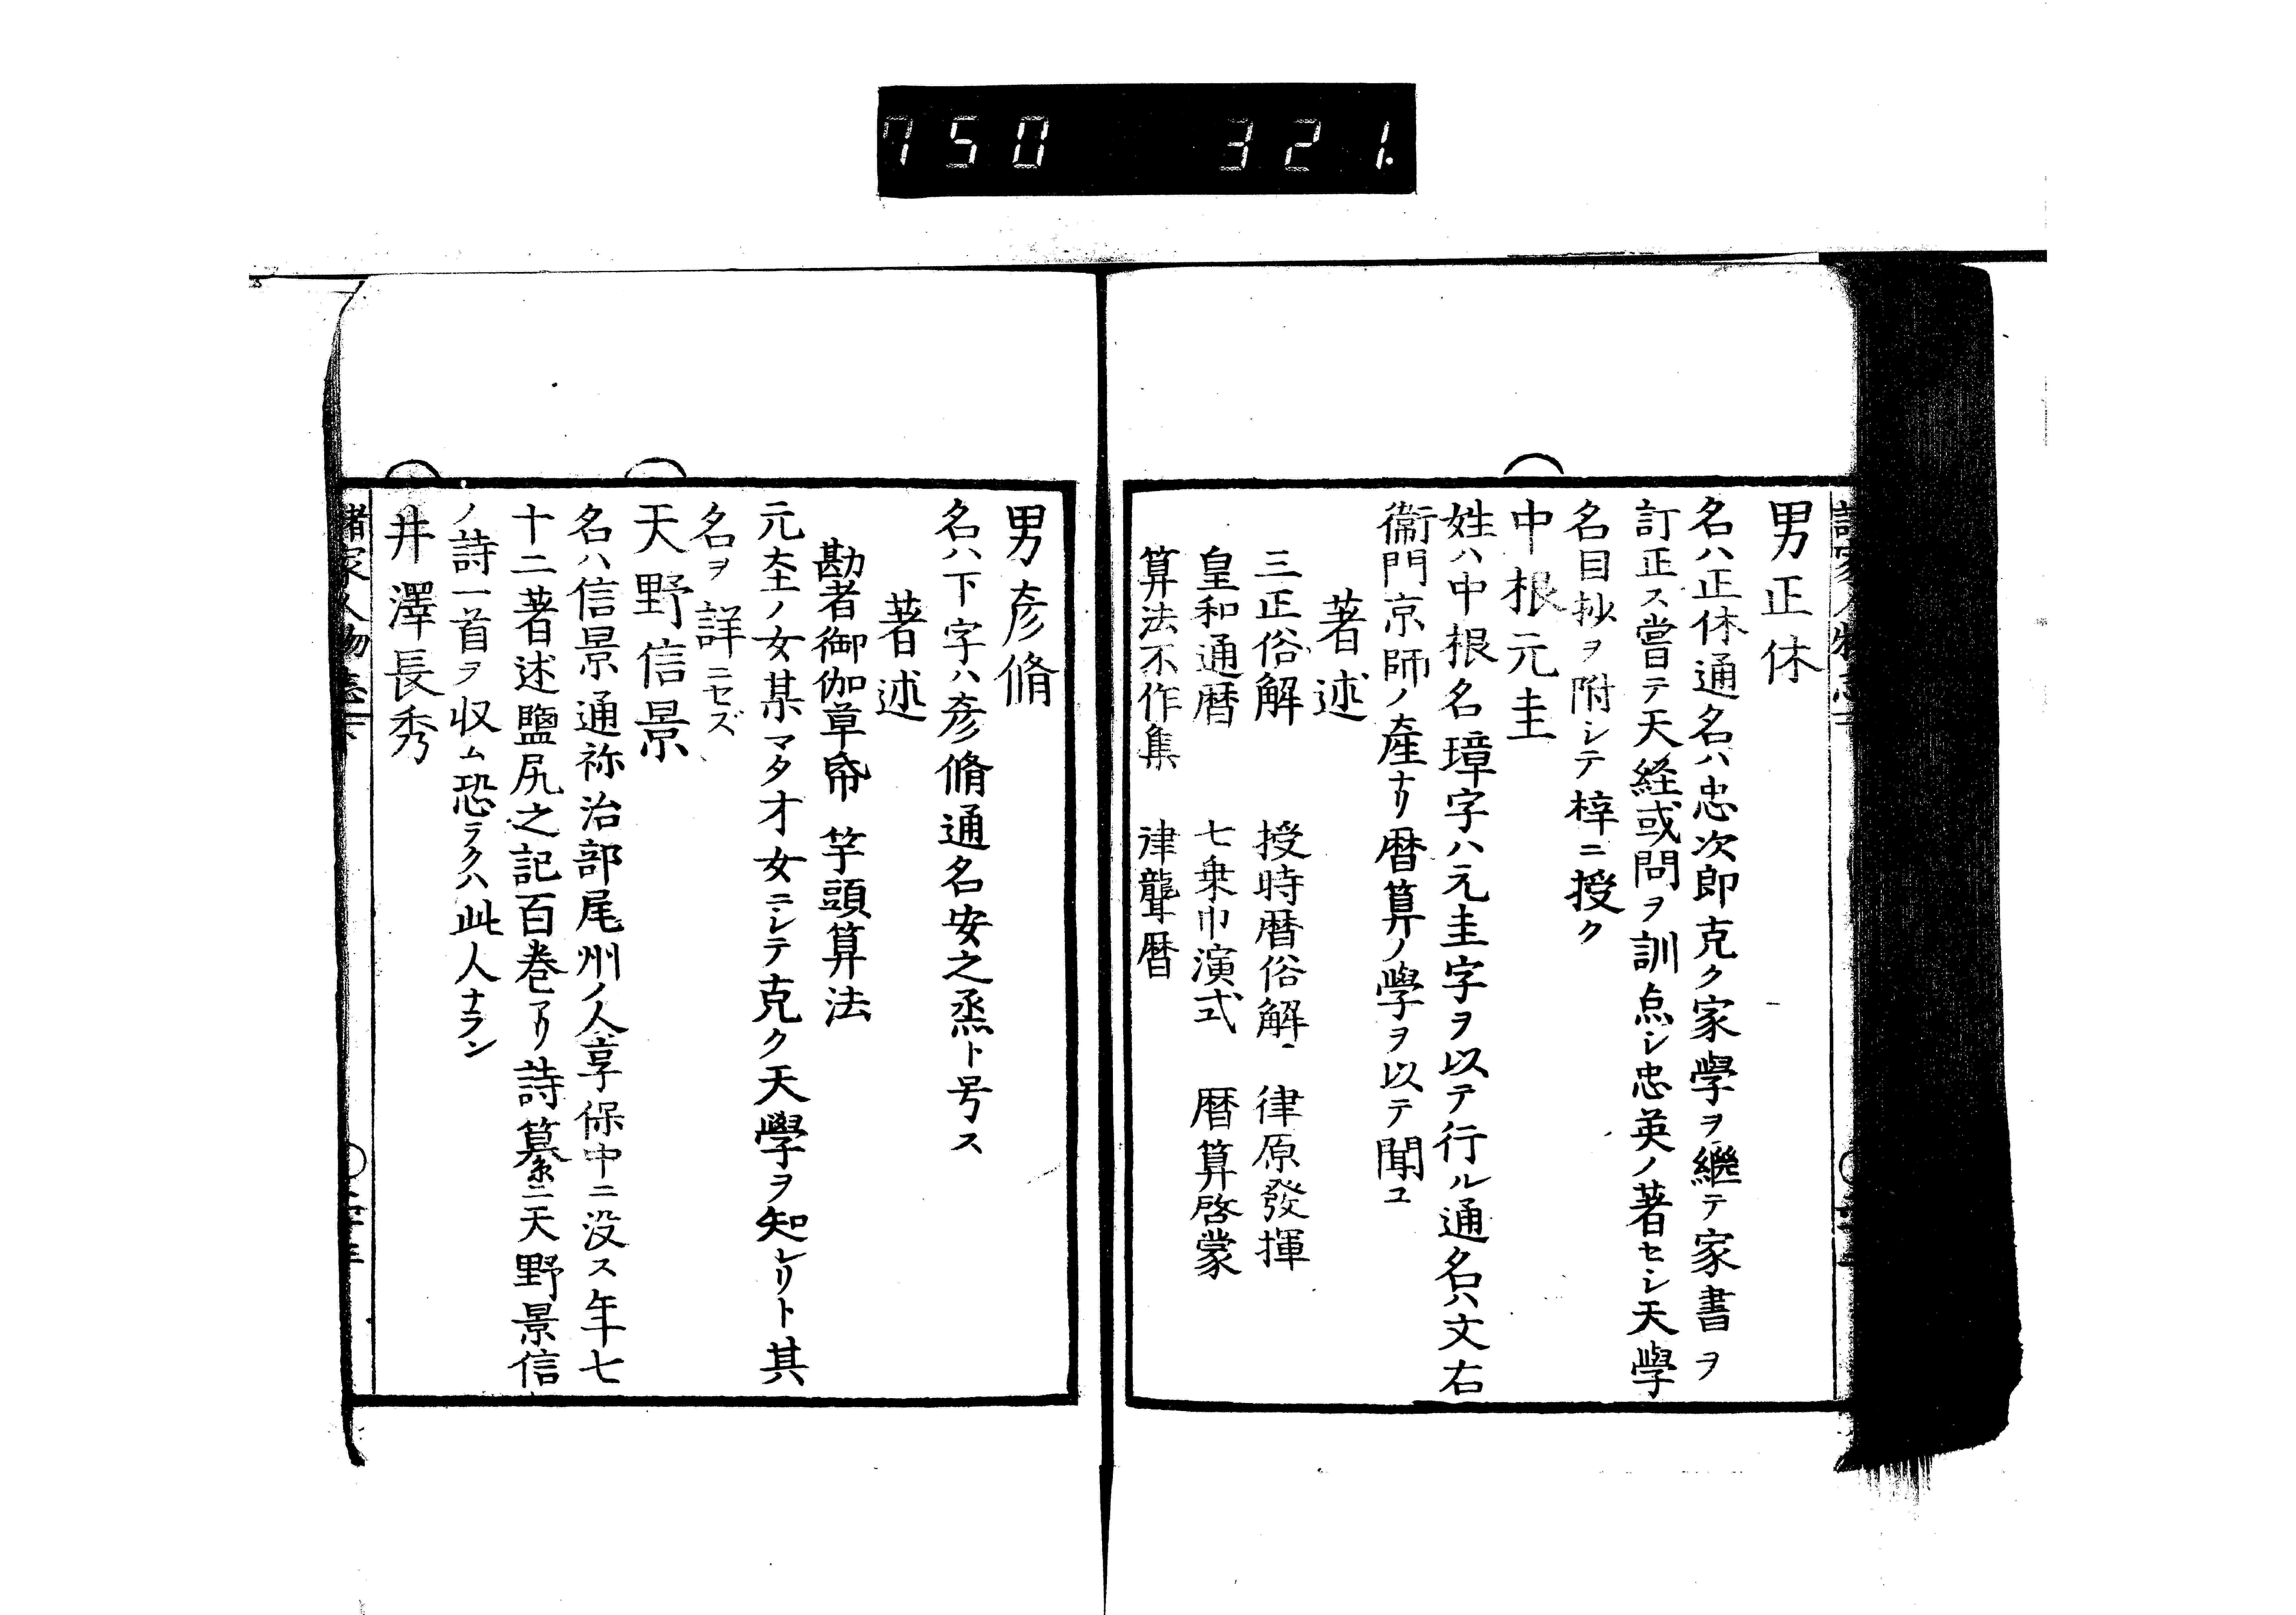 750 321.
男正休
名ハ正休通名ハ忠次郎克ク家學ヲ繼テ家書ヲ
訂正ス嘗テ天経或問ヲ訓点シ忠英ノ著セシ天學
名目抄ヲ附シテ梓ニ授ク
中根元圭
姓ハ中根名璋字ハ元圭字ヲ以テ行ル通名ハ文右
衞門京師ノ產ナリ暦算ノ學ヲ以テ聞ユ
著述
三正俗解 授時暦俗解 律原發揮
皇和通暦 七乗巾演式 暦算啓蒙
算法不作集 律聾暦
男彦脩
名ハ下字ハ彦脩通名安之烝ト号ス
著述
勘者御伽草帋 竿頭算法
元圭ノ女某マタ才女ニシテ克ク天學ヲ知レリト其
名ヲ詳ニセズ
天野信景
名ハ信景通祢治部尾州ノ人享保中ニ没ス年七
十二著述鹽尻之記百巻アリ詩纂ニ天野景信
ノ詩一首ヲ収ム恐ラクハ此人ナラン
井澤長秀
諸家人物志下